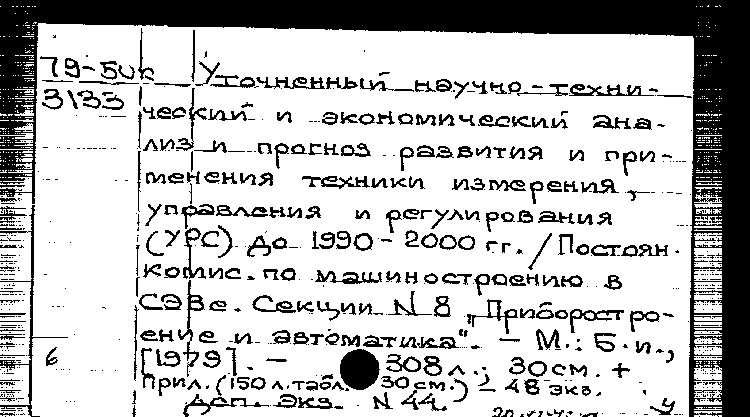 79-5ик Уточненный научно-техни-
3133 ческий и экономический ана-
лиз и прогноз развития и при-
менения техники измерения,
управления и регулирования
(УРС) до 1990-2000 гг. / Постоян.
комис. по машиностроению в
СЭВе. Секции N 8 „Приборостро-
ение и автоматика". - М.: Б.и.,
6 [1979]. - 308 л.; 30см. +
Прил. (150 л.табл. 30 см.) - 48 экз.
Доп. экз. N 44.